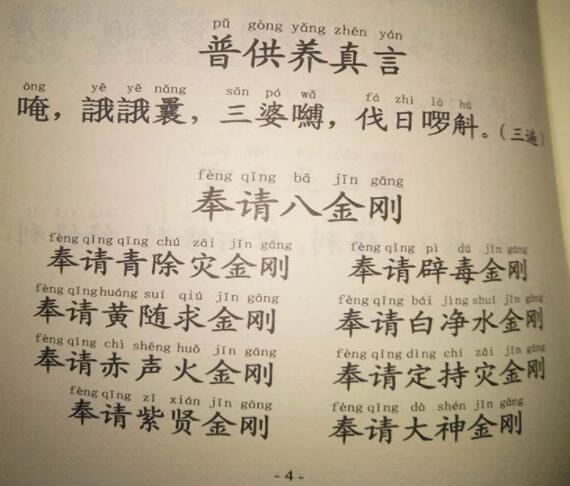 pǔ gòng yǎng zhēn yán
普供养真言
ōng yē yē nǎng sān pó wǎ fá zhì là hú
唵，誐誐曩，三婆嚩，伐日啰斛。（三遍）
fèng qǐng bā jīn gāng
奉请八金刚
fèng qǐng qīng chú zāi jīn gāng
奉请青除灾金刚
fèng qǐng pì dú jīn gāng
奉请辟毒金刚
fèng qǐng huáng suí qiú jīn gāng
奉请黄随求金刚
fèng qǐng bái jìng shuǐ jīn gāng
奉请白净水金刚
fèng qǐng chì shēng huǒ jīn gāng
奉请赤声火金刚
fèng qǐng dìng chí zāi jīn gāng
奉请定持灾金刚
fèng qǐng zǐ xián jīn gāng
奉请紫贤金刚
fèng qǐng dà shén jīn gāng
奉请大神金刚
- 4 -